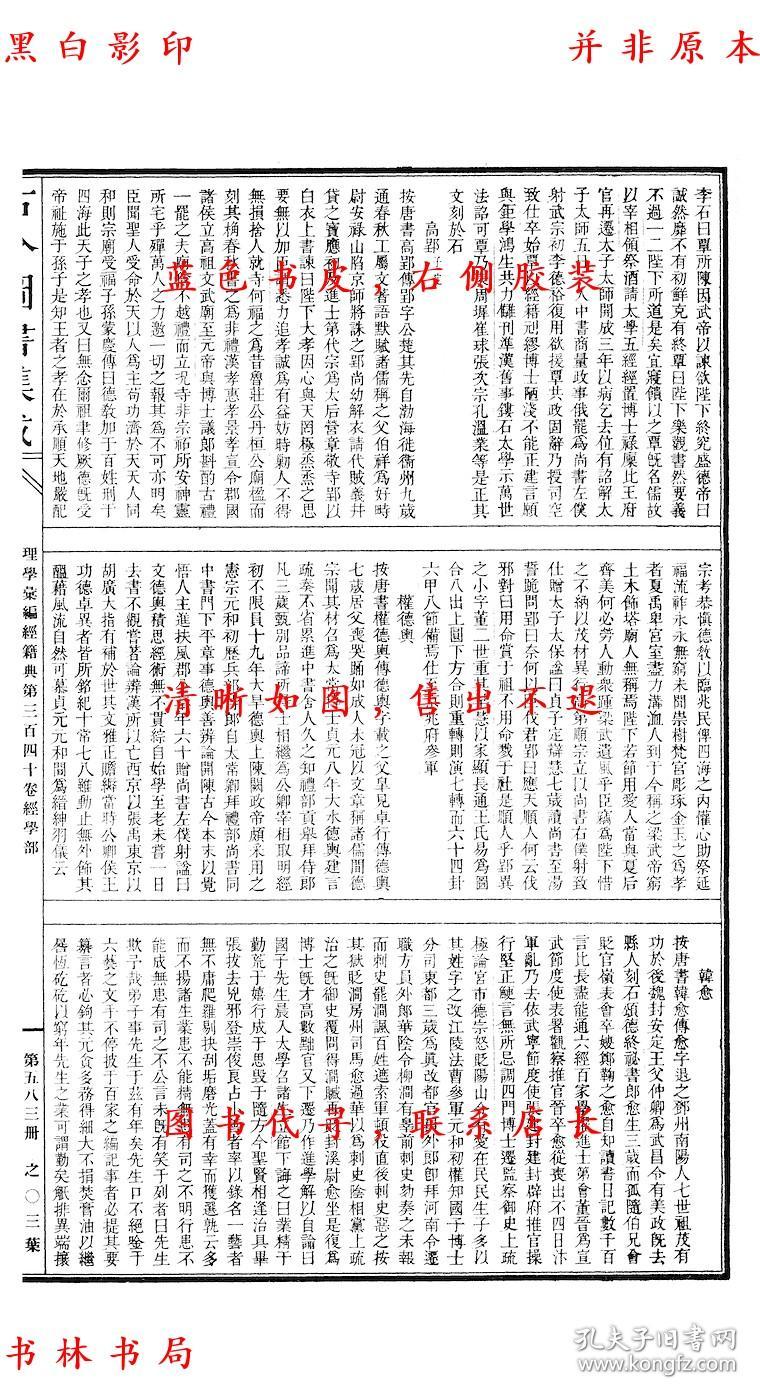 黑白影印
并非原本
李石曰覃所陳因武帝以諫欲陛下終究盛德帝曰
誠然靡不有初鮮克有終覃曰陛下樂觀書然要義
不過一二陛下所道是矣宜寢饋以之覃既名儒故
以宰相領祭酒請太學五經經置博士祿廩比王府
官再遷太子太師開成三年以病乞去位有詔解太
子太師五日一入中書商量政事俄罷為尚書左僕
射武宗初李德裕復用欲援覃共政固辭乃授司空
致仕卒始覃以經籍刓繆博士陋淺不能正建言願
與鉅學鴻生共力讎刊準漢舊事鏤石太學示萬世
法詔可覃乃表周墀崔球張次宗孔溫業等是正其
文刻於石
高郢
按唐書高郢傳郢字公楚其先自渤海徙衞州九歲
通春秋工屬文著語默賦諸儒稱之父伯祥為好時
尉安祿山陷京師將誅之郢尚幼解衣請代賊義并
貸之寶應初及進士第代宗為太后營章敬寺郢以
白衣上書諫曰陛下大孝因心與天罔極烝烝之思
要無以加臣
悉力追孝誠為有益妨時勦人不得
無損捨人就寺何福之為昔魯莊公丹桓公廟楹而
刻其桷春秋書之為非禮漢孝惠孝景孝宣令郡國
諸侯立高祖文武廟至元帝與博士議郎斟酌古禮
一罷之夫廟
不越禮而立況寺非宗祏所安神靈
所宅乎殫萬人之力邀一切之報其為不可亦明矣
臣聞聖人受命於天以人為主苟功濟於天天人同
和則宗廟受福子孫蒙慶傳曰德敎加于百姓刑于
四海此天子之孝也又曰無念爾祖聿修厥德既受
帝祉施于孫子是知王者之孝在於承順天地嚴配
蓝色书皮，右侧胶装
宗考恭愼德敎以臨兆民俾四海之內懽心助祭延
福流祚永永無窮未聞崇樹梵宮彫琢金玉之為孝
者夏禹卑宮室盡力溝洫人到于今稱之梁武帝窮
土木飾塔廟人無稱焉陛下若節用愛人當與夏后
齊美何必勞人動衆踵梁武遺風乎臣竊為陛下惜
之不納以茂材異行
第順宗立以尚書右僕射致
仕贈太子太保諡曰貞子定辯慧七歲讀尚書至湯
誓跪問郢曰奈何以臣伐君郢曰應天順人何云伐
邪對曰用命賞于祖不用命戮于社是順人乎郢異
之小字董二世重其
慧以家顯長通王氏易為圖
合八出上圓下方合則重轉則演七轉而六十四卦
六甲八節備焉仕至京兆府參軍
權德輿
按唐書權德輿傳德輿字載之父皋見卓行傳德輿
七歲居父喪哭踊如成人未冠以文章稱諸儒間德
宗聞其材召為太常博士貞元八年大水德輿建言
疏奏不省累進中書舍人久之知禮部貢舉拜侍郎
凡三歲甄別品諦所
士相繼為公卿宰相取明經
初不限員十九年大旱德輿上陳闕政帝頗采用之
憲宗元和初歷兵部侍郎自太常卿拜禮部尚書同
中書門下平章事德輿善辨論開陳古今本末以覺
悟人主進扶風郡公
年六十贈尚書左僕射諡曰
文德輿積思經術無不貫綜自始學至老未嘗一日
去書不觀嘗著論辨漢所以亡西京以張禹東京以
胡廣大指有補於世其文雅正贍縟當時公卿侯王
功德卓異者皆所銘紀十常七八雖動止無外飾其
醞藉風流自然可慕貞元元和間為縉紳羽儀云
清晰如图，售出不退
韓愈
按唐書韓愈傳愈字退之鄧州南陽人七世祖茂有
功於後魏封安定王父仲卿為武昌令有美政既去
縣人刻石頌德終祕書郎愈生三歲而孤隨伯兄會
貶官嶺表會卒嫂鄭鞠之愈自知讀書日記數千百
言比長盡能通六經百家學擢進士第會董晉為宣
武節度使表署觀察推官晉卒愈從喪出不四日汴
軍亂乃去依武寧節度使張建封建封辟府推官操
行堅正鯁言無所忌調四門博士遷監察御史上疏
極論宮市德宗怒貶陽山令有愛在民民生子多以
其姓字之改江陵法曹參軍元和初權知國子博士
分司東都三歲為真改都官員外郎卽拜河南令遷
職方員外郎華陰令柳澗有辠前刺史劾奏之未報
而刺史罷澗諷百姓遮索軍頓役直後刺史惡之按
其獄貶澗房州司馬愈過華以為刺史陰相黨上疏
治之既御史覆問得澗贓再貶封溪尉愈坐是復為
博士既才高數黜官又下遷乃作進學解以自諭曰
國子先生晨入太學召諸生立館下誨之曰業精于
勤荒于嬉行成于思毀于隨方今聖賢相逢治具畢
張拔去兇邪登崇俊良占小善者率以錄名一藝者
無不庸爬羅剔抉刮垢磨光蓋有幸而獲選孰云多
而不揚諸生業患不能精無患有司之不明行患不
能成無患有司之不公言未既有笑于列者曰先生
欺予哉弟子事先生于茲有年矣先生口不絕唫于
六藝之文手不停披于百家之編記事者必提其要
纂言者必鉤其元貪多務得細大不捐焚膏油以繼
晷恆矻矻以窮年先生之業可謂勤矣觝排異端攘
图书代寻，联系店长
理學彙編經籍典第三百四十卷經學部
第五八三冊 之〇三葉
书林书局
孔夫子旧书网
www.kongfz.com